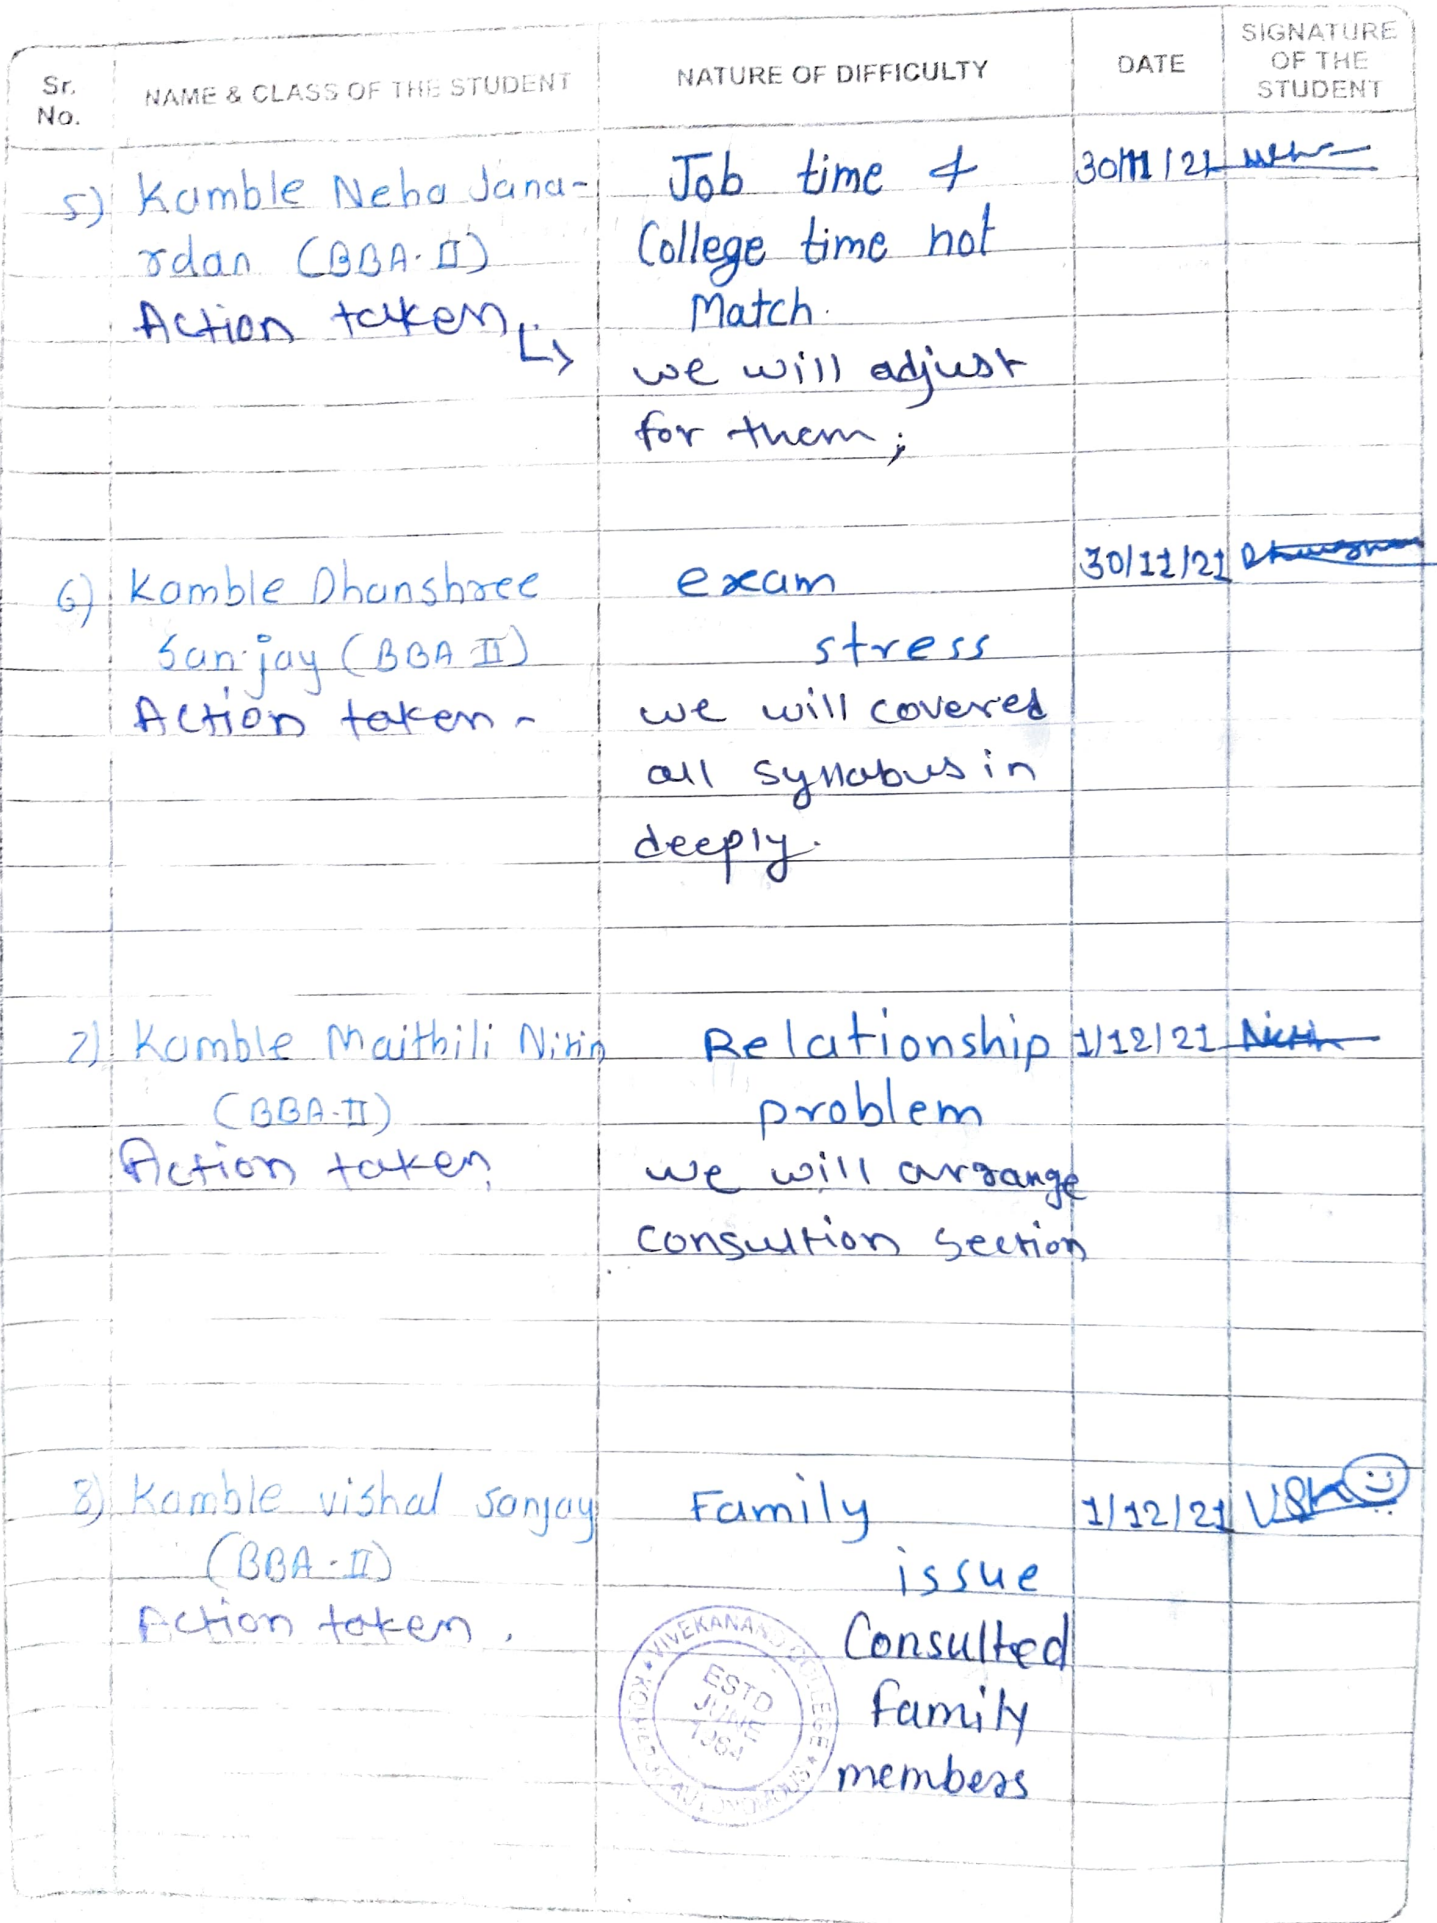 Sr. No.
NAME & CLASS OF THE STUDENT
NATURE OF DIFFICULTY
DATE
SIGNATURE OF THE STUDENT
5) Kamble Neha Jana-
rdan (BBA-II)
Action taken
Job time &
College time not
Match.
we will adjust
for them;
30/11/21
6) Kamble Dhanshree
Sanjay (BBA II)
Action taken -
exam
stress
we will covered
all syllabus in
deeply.
30/11/21
7) Kamble Maithili Nitin
(BBA-II)
Action taken
Relationship
problem
we will arrange
consultion section
1/12/21
8) Kamble vishal sanjay
(BBA-II)
Action taken.
Family
issue
Consulted
family
members
1/12/21
VIVEKANAND COLLEGE
AUTONOMOUS
ESTD
JUNE